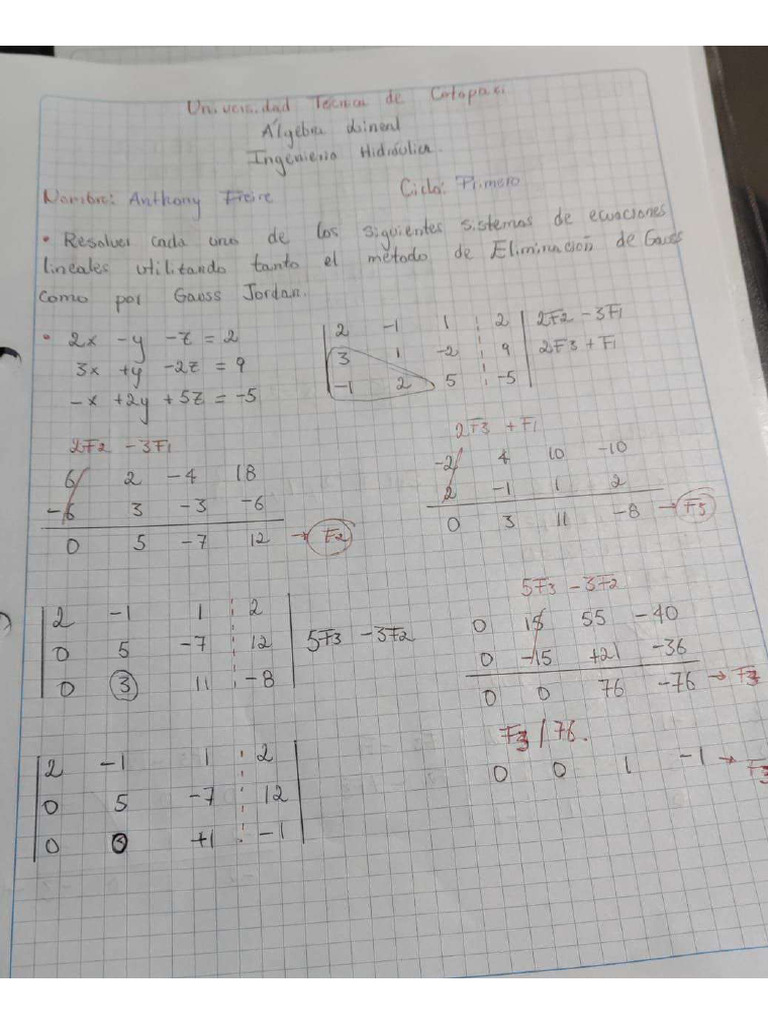 Universidad Tecnica de Cotopaxi
Álgebra Lineal
Ingenieria Hidráulica.
Nombre: Anthony Freire Ciclo: Primero
• Resolver cada uno de los siguientes sistemas de ecuaciones
lineales utilitando tanto el método de Eliminación de Gauss
como por Gauss Jordan.
• 2x -y -z = 2
3x +y -2z = 9
-x +2y +5z = -5
2 -1 1 2 2F2 - 3F1
3 1 -2 9 2F3 + F1
-1 2 5 -5
2F2 - 3F1
6 2 -4 18
-6 3 -3 -6
0 5 -7 12 → F2
2F3 + F1
-2 4 10 -10
2 -1 1 2
0 3 11 -8 → F3
2 -1 1 2
0 5 -7 12 5F3 - 3F2
0 3 11 -8
5F3 - 3F2
0 15 55 -40
0 -15 +21 -36
0 0 76 -76 → F3
F3/76.
0 0 1 -1 → F3
2 -1 1 2
0 5 -7 12
0 0 +1 -1